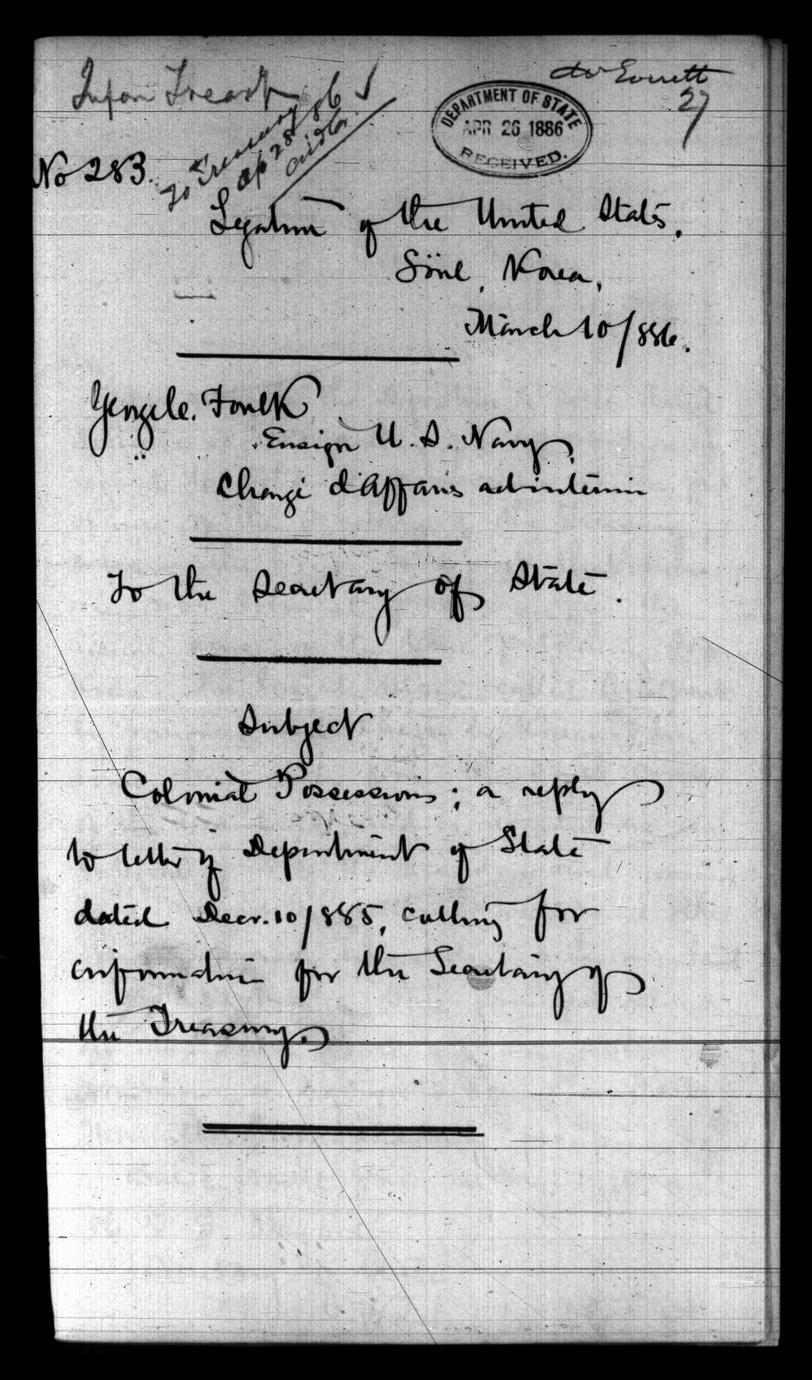 Infm Treas'y
Mr Everett
27
To Treasury
Ap 28 86
DEPARTMENT OF STATE
APR 26 1886
RECEIVED.
No 283.
Legation of the United States,
Söul, Korea,
March 10/886.
George C. Foulk
Ensign U. S. Navy,
Chargé d'Affaires ad interim
To the Secretary of State.
Subject
Colonial Possessions; a reply
to letter of Department of State
dated Decr. 10/885, calling for
information for the Secretary of
the Treasury.